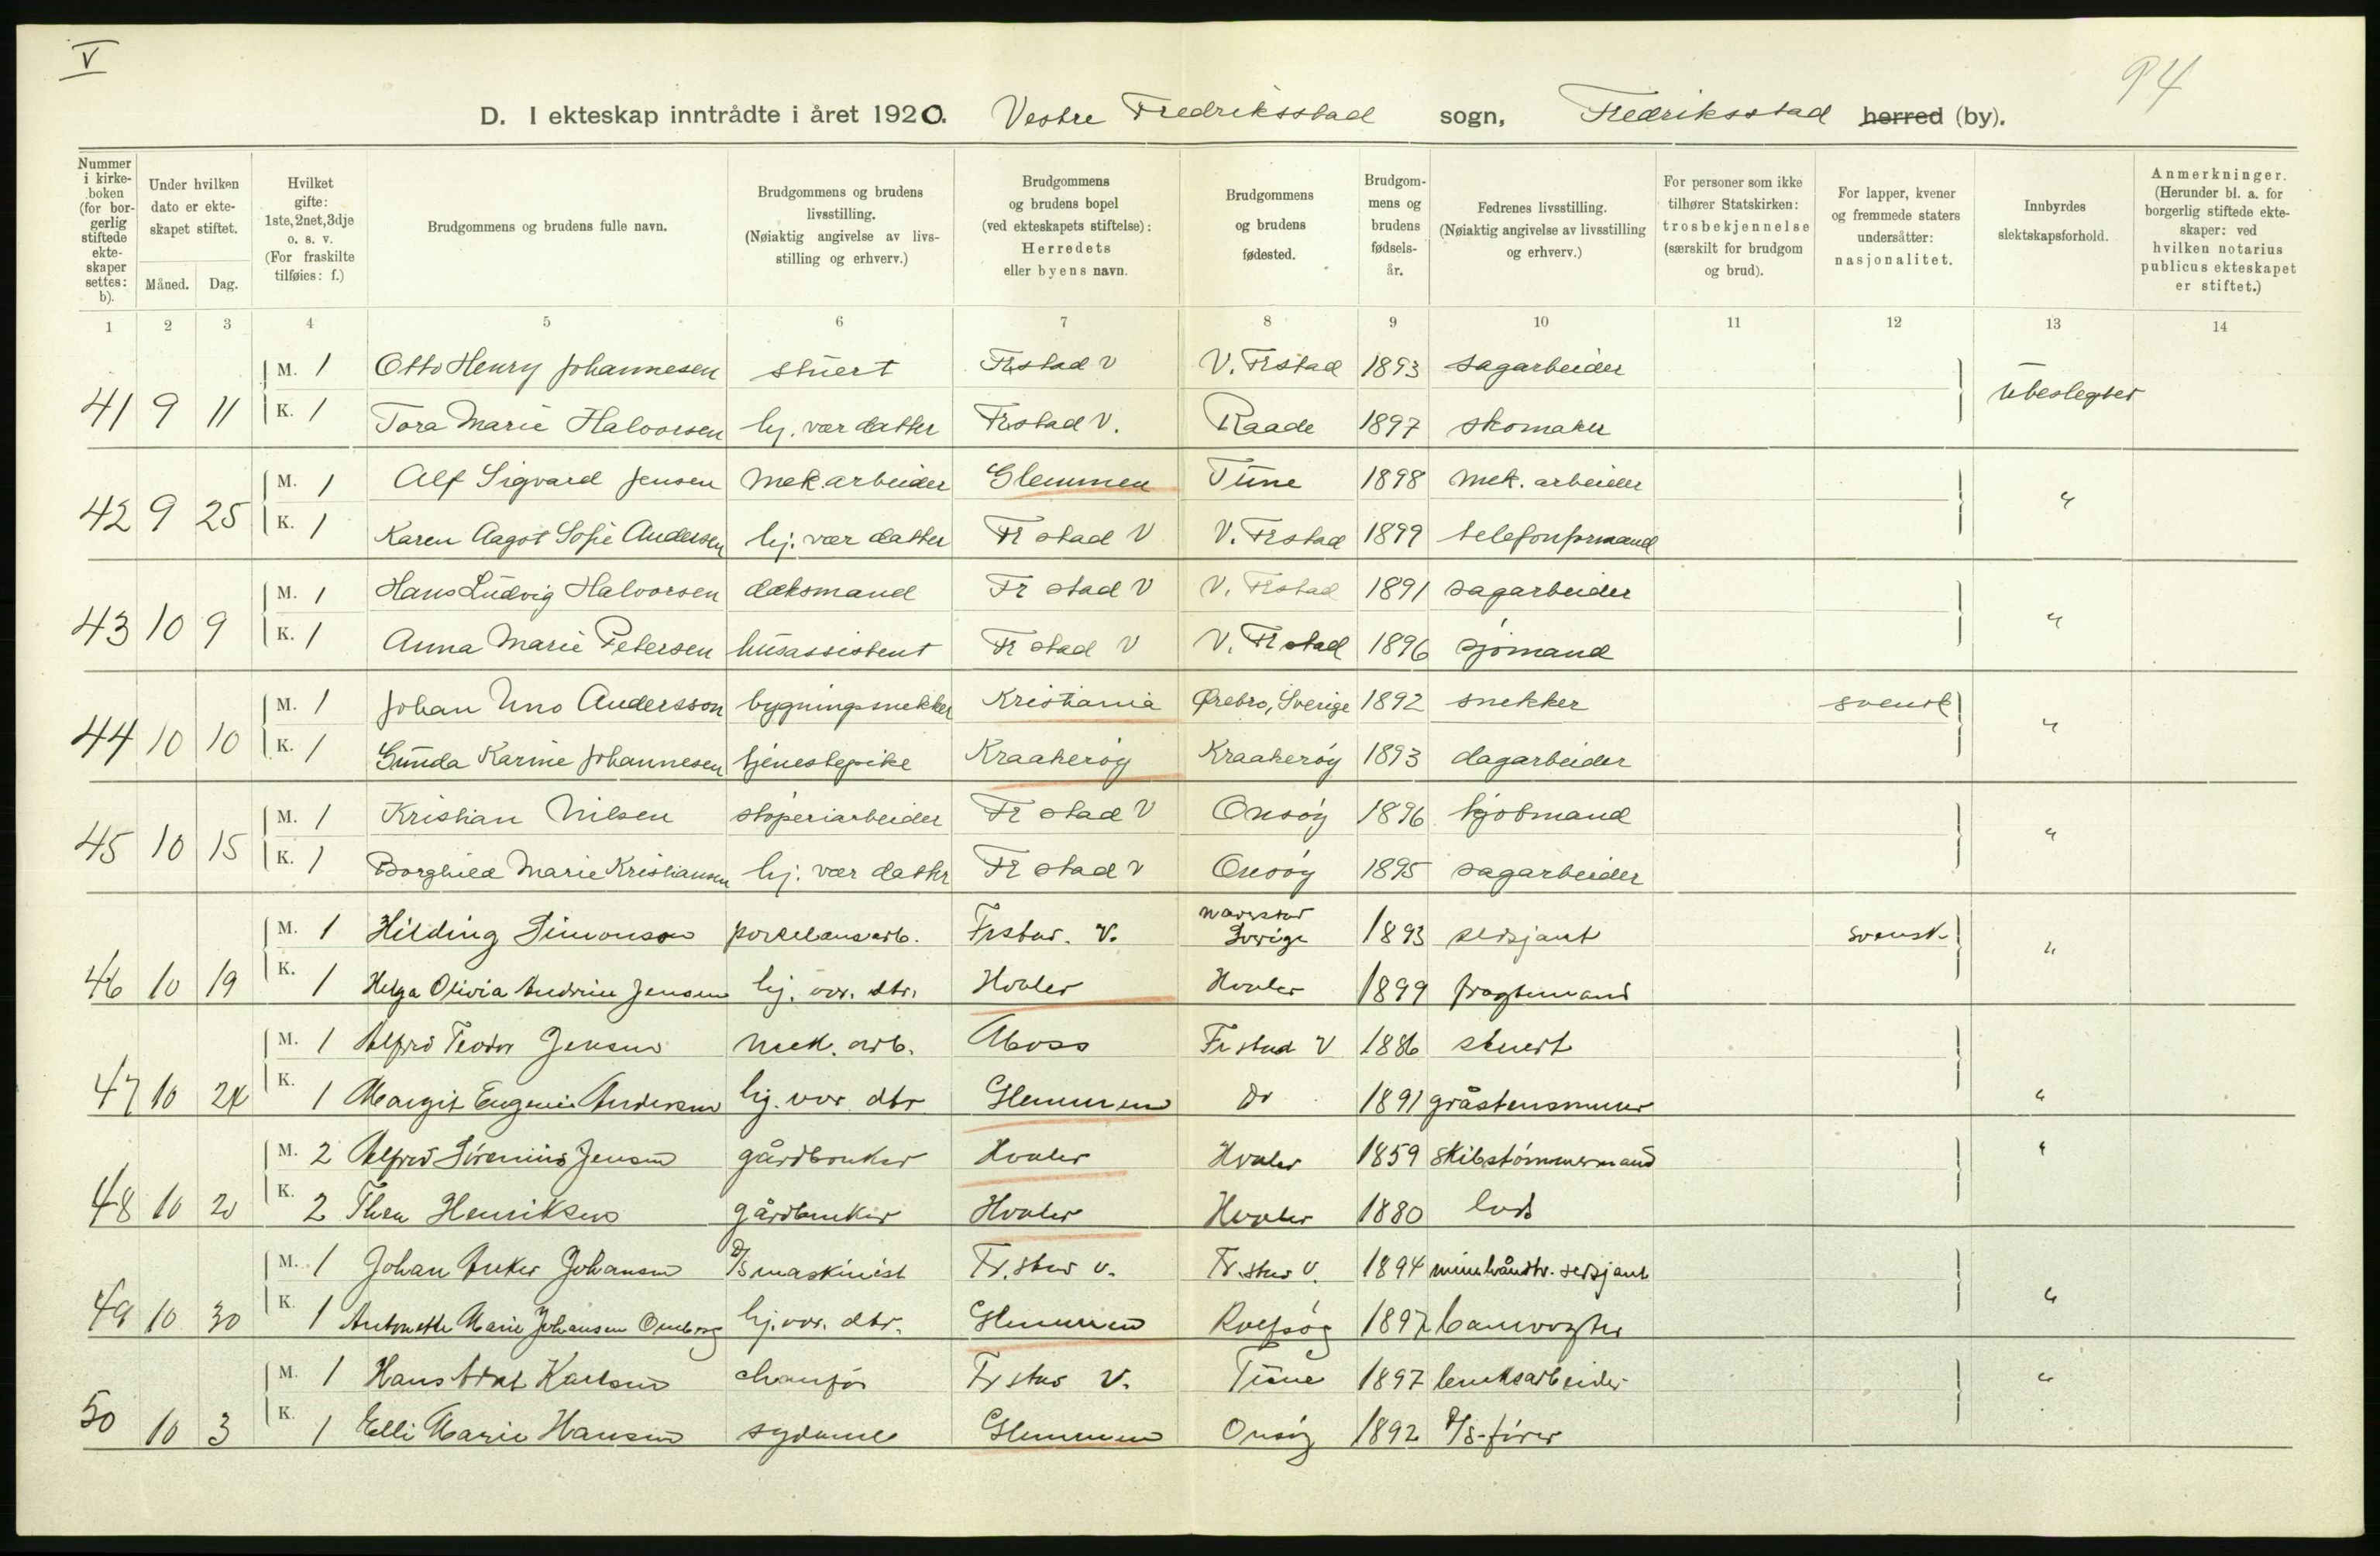 V
94
D. I ekteskap inntrådte i året 1920. Vestre Fredriksstad sogn, Fredriksstad herred (by).
Nummer i kirkeboken (for borgerlig stiftede ekteskaper settes: b).
Under hvilken dato er ekteskapet stiftet. Måned. Dag.
Hvilket gifte: 1ste, 2net, 3dje o. s. v. (For fraskilte tilføies: f.)
Brudgommens og brudens fulle navn.
Brudgommens og brudens livsstilling. (Nøiaktig angivelse av livsstilling og erhverv.)
Brudgommens og brudens bopel (ved ekteskapets stiftelse): Herredets eller byens navn.
Brudgommens og brudens fødested.
Brudgommens og brudens fødselsår.
Fedrenes livsstilling. (Nøiaktig angivelse av livsstilling og erhverv.)
For personer som ikke tilhører Statskirken: trosbekjennelse (særskilt for brudgom og brud).
For lapper, kvener og fremmede staters undersåtter: nasjonalitet.
Innbyrdes slektskapsforhold.
Anmerkninger. (Herunder bl. a. for borgerlig stiftede ekteskaper: ved hvilken notarius publicus ekteskapet er stiftet.)
1 2 3 4 5 6 7 8 9 10 11 12 13 14
M. 1 Otto Henry Johannesen stuert Frstad V V. Frstad 1893 sagarbeider ubeslegtet
41 9 11 K. 1 Tora Marie Halvorsen hj. vær datter Frstad V. Raade 1897 skomaker
M. 1 Alf Sigvard Jensen Mek. arbeider Glemmen Tune 1898 mek. arbeider "
42 9 25 K. 1 Karen Aagot Sofie Andersen hj. vær datter Fr stad V V. Frstad 1899 telefonformand
M. 1 Hans Ludvig Halvorsen dæksmand Fr stad V V. Frstad 1891 sagarbeider "
43 10 9 K. 1 Anna Marie Petersen husassistent Fr stad V V. Frstad 1896 sjømand
M. 1 Johan Uno Andersson bygningsnekker Kristiania Ørebro, Sverige 1892 snekker svensk "
44 10 10 K. 1 Gunda Karine Johannesen tjenestepike Kraakerøy Kraakerøy 1893 dagarbeider
M. 1 Kristian Nilsen støperiarbeider Fr stad V Onsøy 1896 kjøbmand "
45 10 15 K. 1 Borghild Marie Kristiansen hj. vær datter Fr stad V Onsøy 1895 sagarbeider
M. 1 Hilding Simonson porselensarb. Frstad. V. Sverige 1893 sersjant svensk "
46 10 19 K. 1 Helga Olivia Andrine Jensen hj. vær. dtr. Hvaler Hvaler 1899 fragtemand
M. 1 Alfred Teodor Jensen mek. arb. Moss Fr stad V 1886 stuert
47 10 24 K. 1 Margit Eugenie Andersen hj. vær dtr Glemmen Do 1891 gråstensmurer "
M. 2 Alfred Sørenius Jensen gårdbruker Hvaler Hvaler 1859 skibstømmermand "
48 10 20 K. 2 Thea Henriksen gårdbruker Hvaler Hvaler 1880 lods
M. 1 Johan Anker Johansen D/S maskinist Fr. stad V. Fr. stad V. 1894 sersjant
49 10 30 K. 1 Antonette Marie Johansen Omborg hj. vær. dtr. Glemmen Rolfsøy 1897 banevogter "
M. 1 Hans Karlsen chauffør Fr stad V. Tune 1897 bruksarbeider "
50 10 3 K. 1 Elli Marie Hansen sydame Glemmen Onsøy 1892 D/S-fører